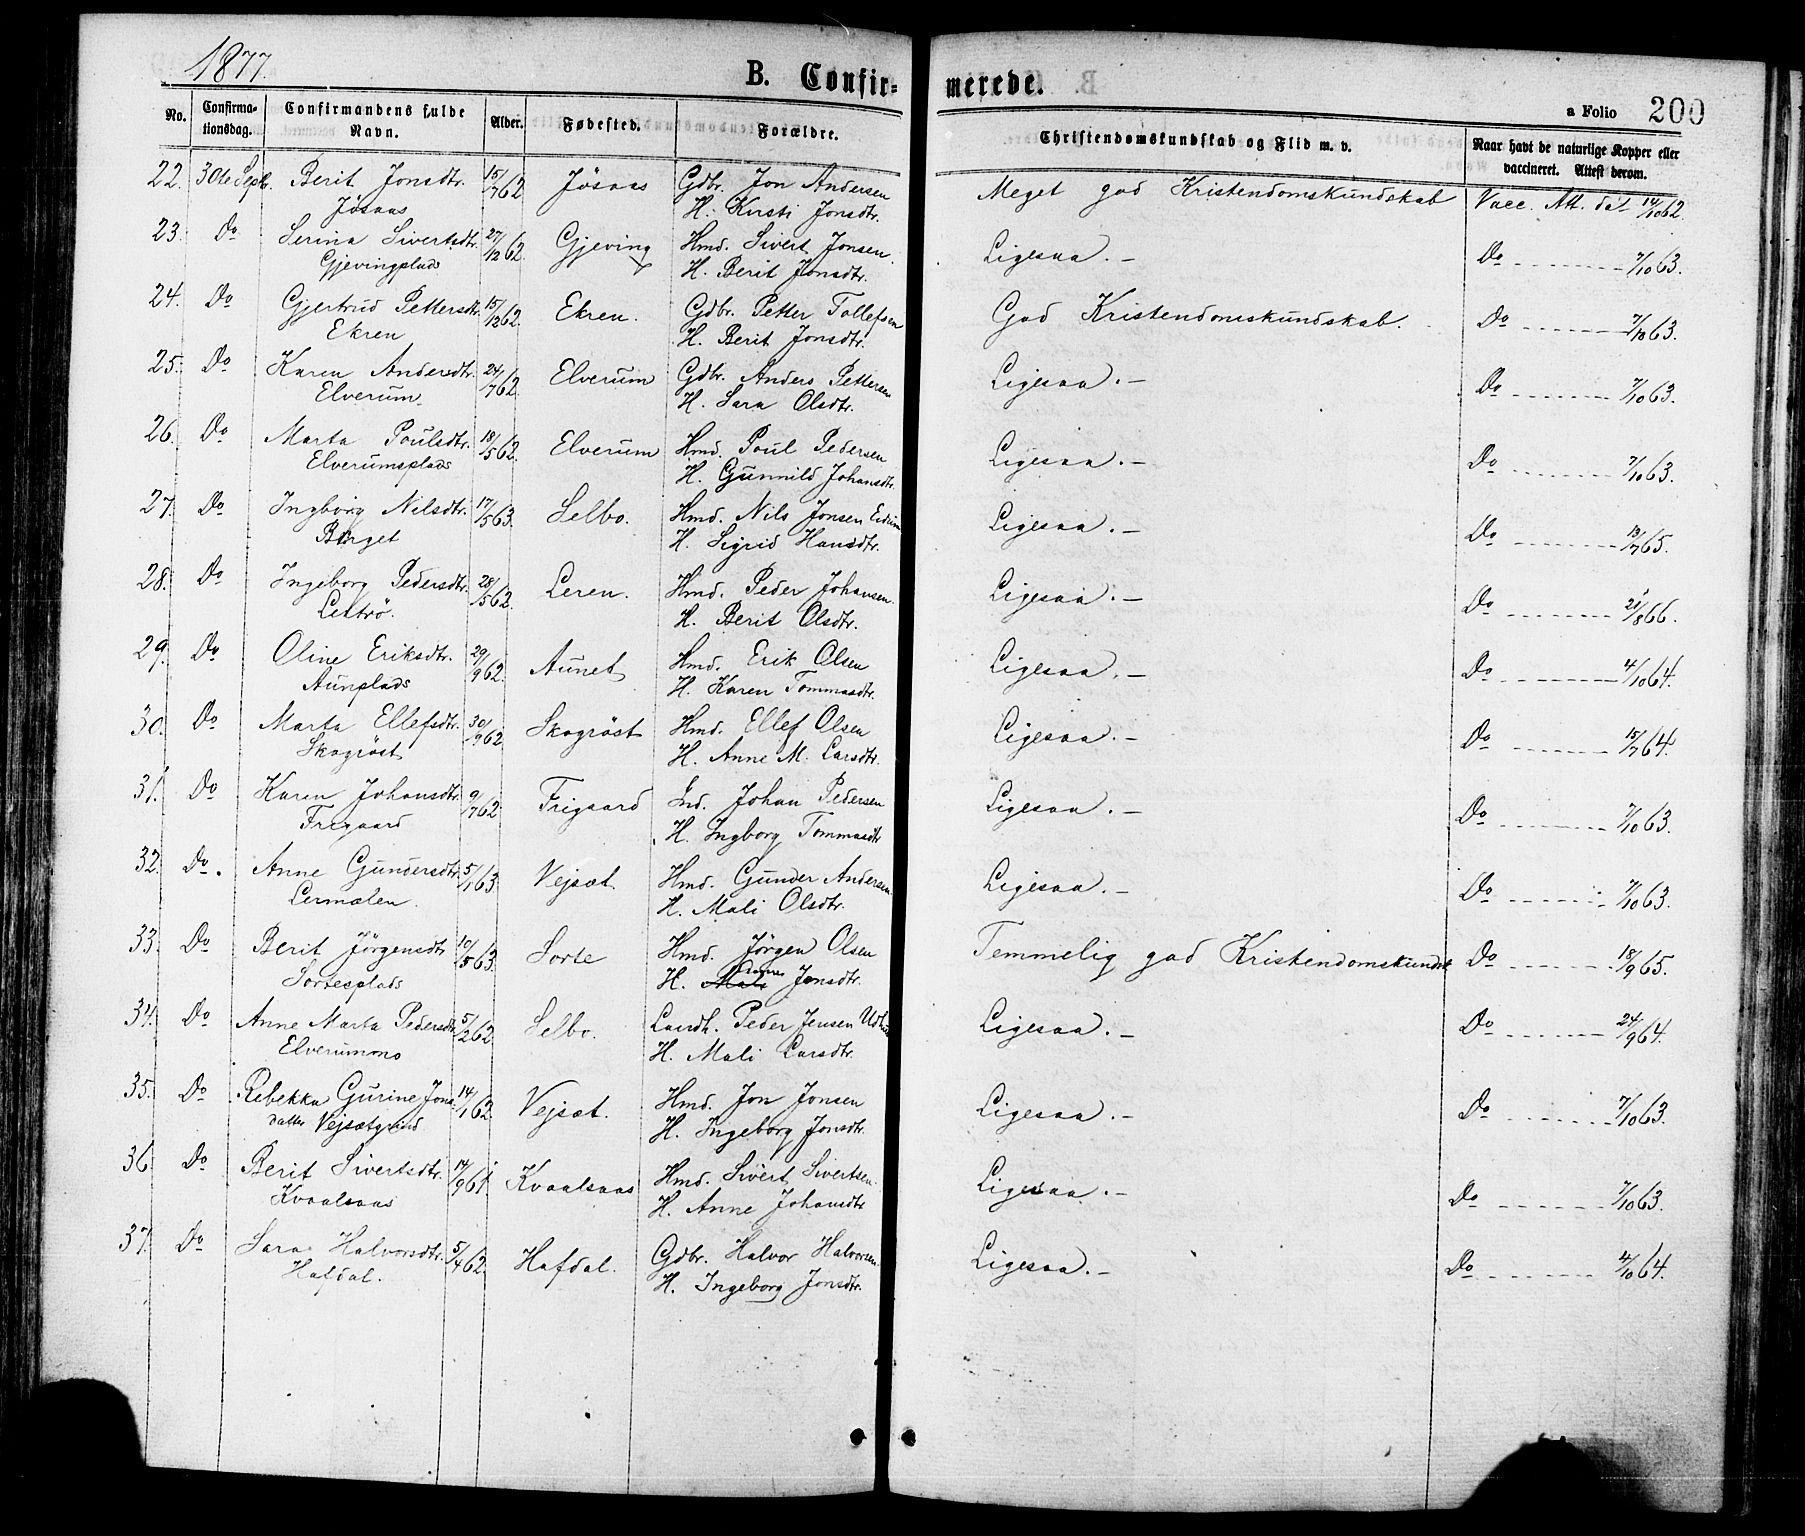 1877.
B. Confir- merede.
a Folio 200
No. Confirma-tionsdag. Confirmandens fulde Navn. Alder. Fødested. Forældre. Christendomskundskab og Flid m. v. Naar havt de naturlige Kopper eller vaccineret. Attest derom.
22. 30te Sept. Berit Jonsdtr. 15/7 62 Jösaas Gdbr. Jon Andersen Meget god Kristendomskundskab Vacc. Att. dat. 14/10 62.
Jösaas H. Kirsti Jonsdtr.
23. Do Serina Sivertsdtr. 27/12 62. Gjeving Hmd. Sivert Jonsen. Ligesaa. — Do 7/10 63.
Gjevingplads H. Berit Jonsdtr.
24. Do Gjertrud Pettersdtr. 15/12 62. Ekren. Gdbr. Petter Tollefsen God Kristendomskundskab. Do 7/10 63.
Ekren H. Berit Jonsdtr.
25. Do Karen Andersdtr. 24/7 62. Elverum Gdbr. Anders Pettersen Ligesaa. — Do 7/10 63.
Elverum H. Sara Olsdtr.
26. Do Marta Poulsdtr. 18/5 62. Elverum Hmd. Poul Pedersen Ligesaa. — Do 7/10 63.
Elverumsplads H. Gunnild Johansdtr.
27. Do Ingborg Nilsdtr. 17/5 63. Selbo. Hmd. Nils Jonsen Ligesaa. — Do 13/7 65.
Berget H. Sigrid Hansdtr.
28. Do Ingeborg Pedersdtr. 28/5 62. Leren. Hmd. Peder Johansen. Ligesaa. — Do 21/8 66.
H. Berit Olsdtr.
29. Do Oline Eriksdtr. 29/9 62. Aunet Hmd. Erik Olsen Ligesaa. — Do 4/10 64.
Aunplads H. Karen Tommasdtr.
30. Do Marta Ellefsdtr. 30/9 62 Skogröst Hmd. Ellef Olsen Ligesaa. — Do 15/7 64.
Skogröst H. Anne M. Larsdtr.
31. Do Karen Johansdtr. 9/7 62 Frigaard Ind. Johan Pedersen Ligesaa. — Do 7/10 63.
Frigaard H. Ingborg Tommasdtr
32. Do. Anne Gundersdtr. 5/1 63. Vejsæt. Hmd. Gunder Andersen Ligesaa. — Do 7/10 63.
Lermælen. H. Mali Olsdtr.
33. Do Berit Jörgensdtr 10/5 63. Sorte Hmd. Jörgen Olsen Temmelig god Kristendomskundsk Do 18/9 65.
Sortesplads H. Mali Jonsdtr.
34. Do Anne Marta Pedersdtr. 5/2 62 Selbo. Landh. Peder Jensen Ligesaa. — Do 24/9 64.
Elverummo H. Mali Larsdtr.
35. Do Rebekka Gurine Jons 14/1 62. Vejsæt. Hmd. Jon Jonsen Ligesaa. — Do 7/10 63.
datter Vejsætgrind H. Ingeborg Jonsdtr.
36. Do Berit Sivertsdtr. 14/9 61. Kvaalsaas Hmd. Sivert Sivertsen. Ligesaa. — Do 7/10 63.
Kvaalsaas H. Anne Johansdtr
37. Do Sara Halvorsdtr. 5/4 62. Hafdal. Gdbr. Halvor Halvorsen Ligesaa. — Do 4/10 64.
Hafdal. H. Ingeborg Jonsdtr.